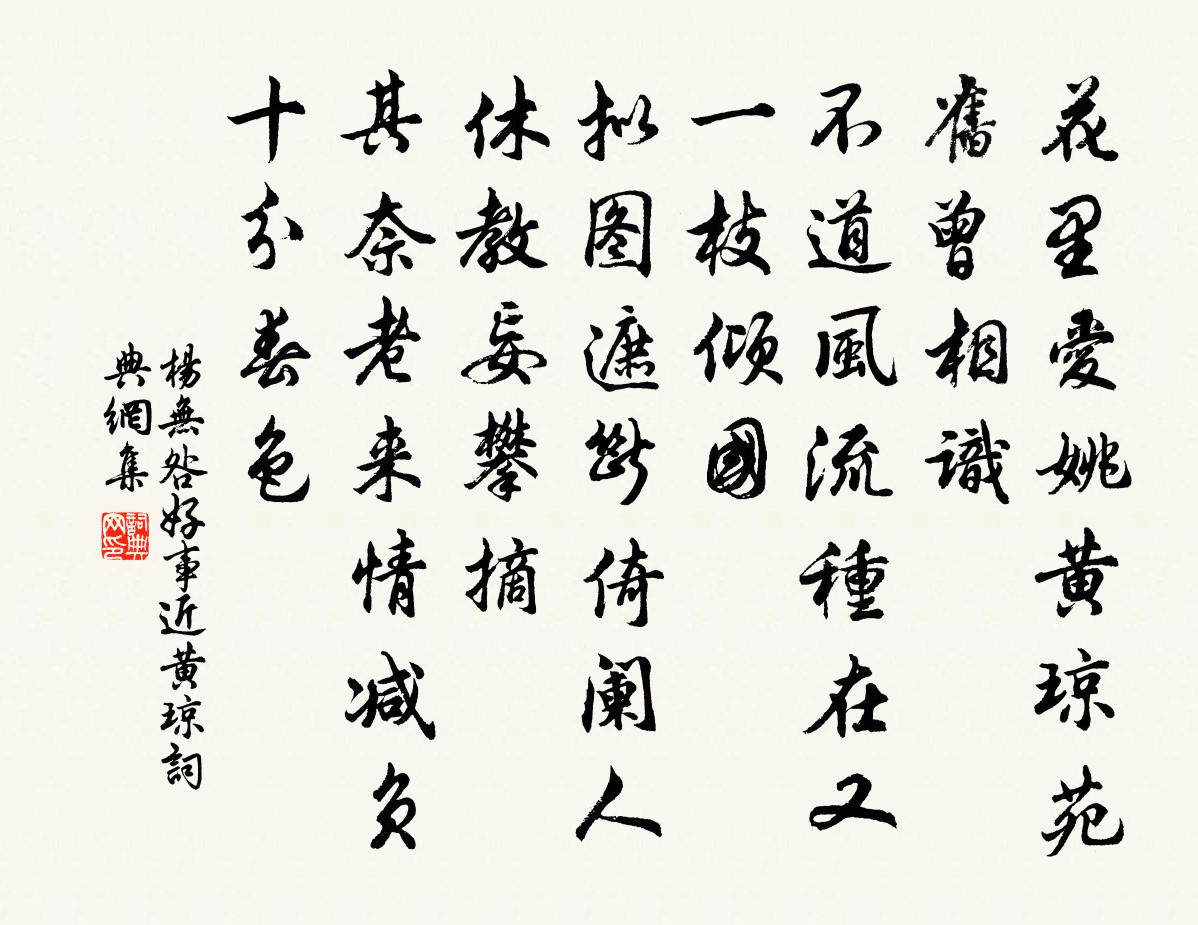 花里愛姚黄琼苑
舊曾相識
不道風流種在又
一枝傾國
拟图遮斷倚阑人
休教妄攀摘
其奈老来情减负
十分春色
楊無咎好事近黄琼詞
典網集
詞典網印